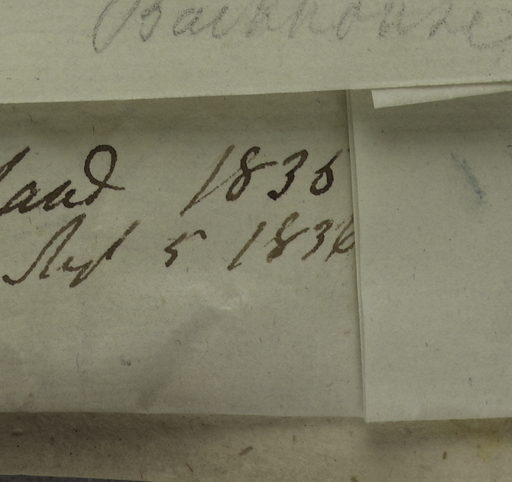 Backhouse
land 1836
Sept 5 1836